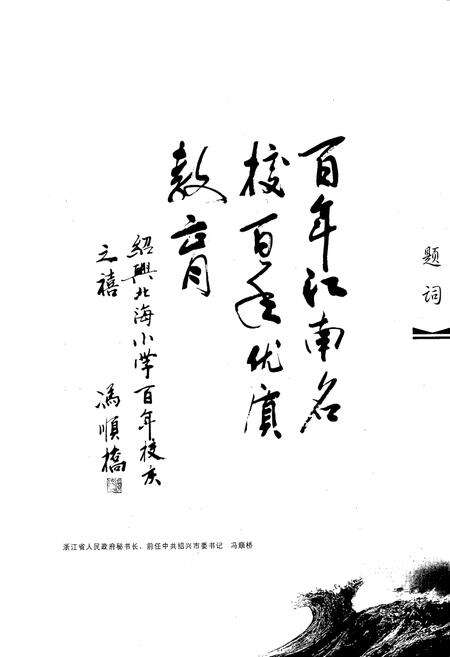 题词
百年江南名
校百年优质
教育
绍興北海小学百年校庆
之禧
馮順橋
浙江省人民政府秘书长、前任中共绍兴市委书记 冯顺桥